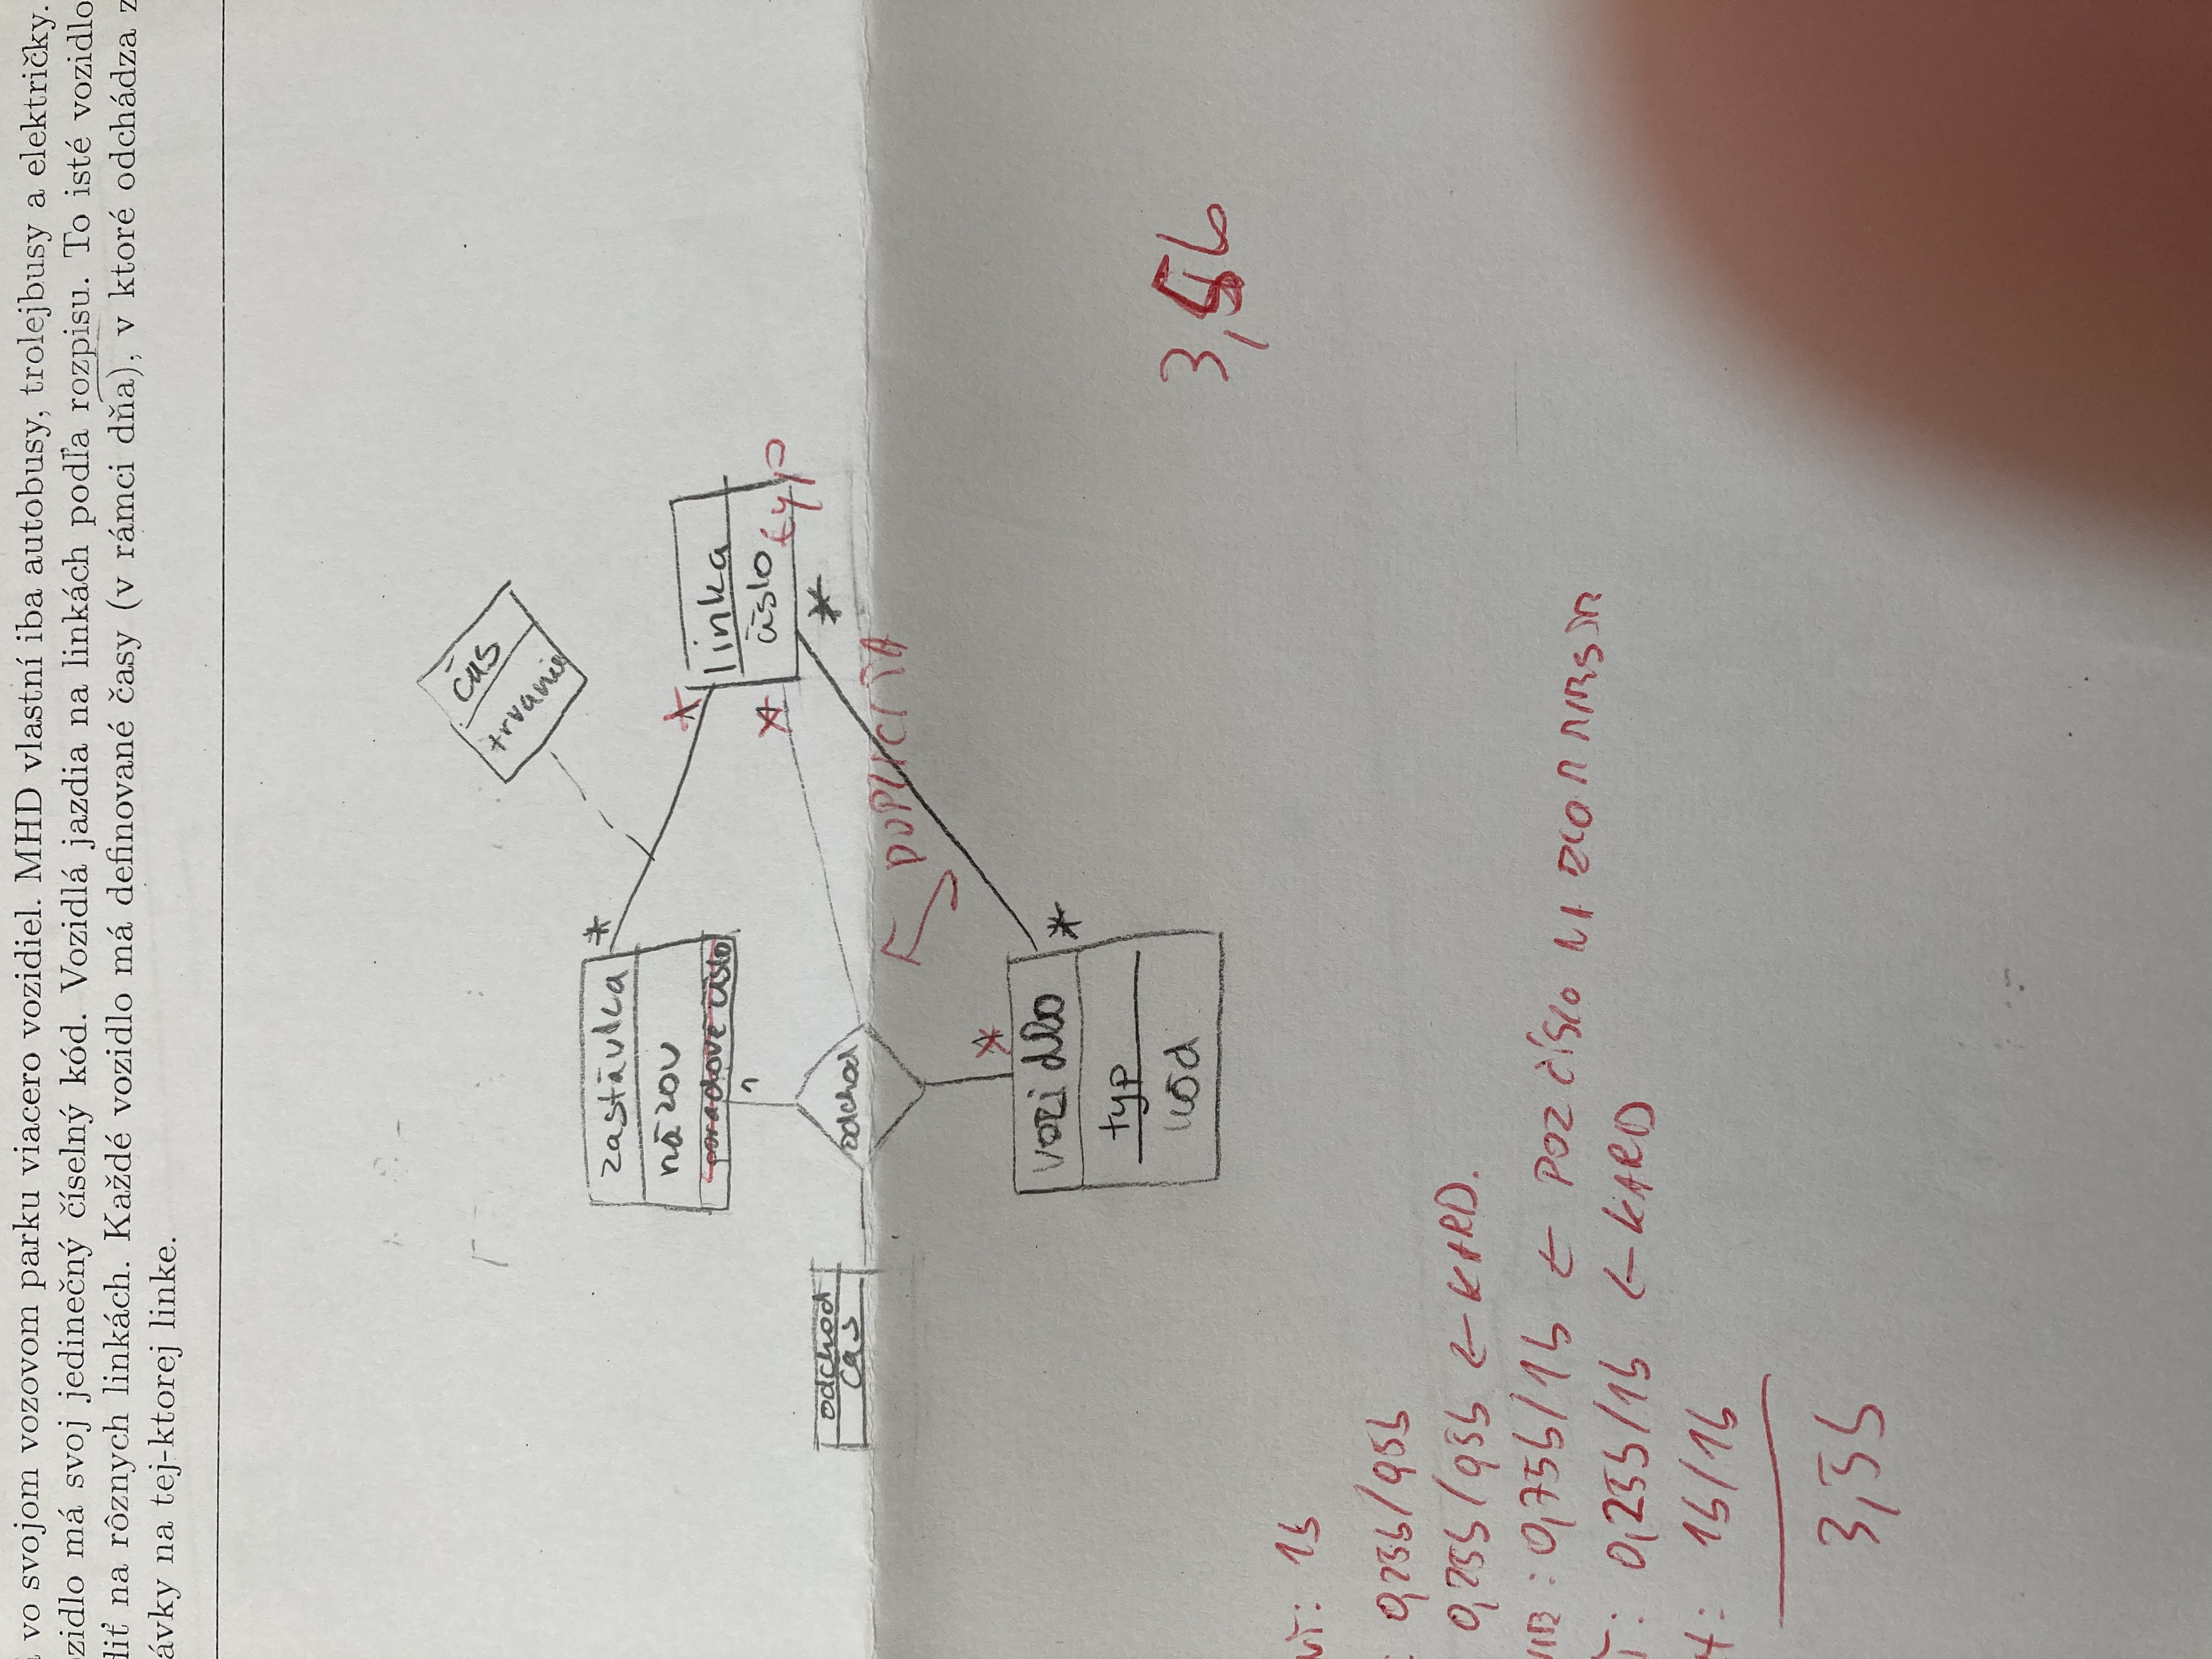 vo svojom vozovom parku viacero vozidiel. MHD vlastní iba autobusy, trolejbusy a električky.
ozidlo má svoj jedinečný číselný kód. Vozidlá jazdia na linkách podľa rozpisu. To isté vozidlo
diť na rôznych linkách. Každé vozidlo má definované časy (v rámci dňa), v ktoré odchádza z
ávky na tej-ktorej linke.
čas
trvanie
zastávka *
názov
poradové číslo
*
linka
číslo typ
*
*
1
odchod
čas
odchod
DUPLICITA
*
vozidlo
*
typ
kód
3,5b
: 1b
: 0,25b/0,5b
0,25b/0,5b ← KARD.
: 0,75b/1b ← POZ ČÍSLO
: 0,25b/1b ← KARD
: 1b/1b
3,5b